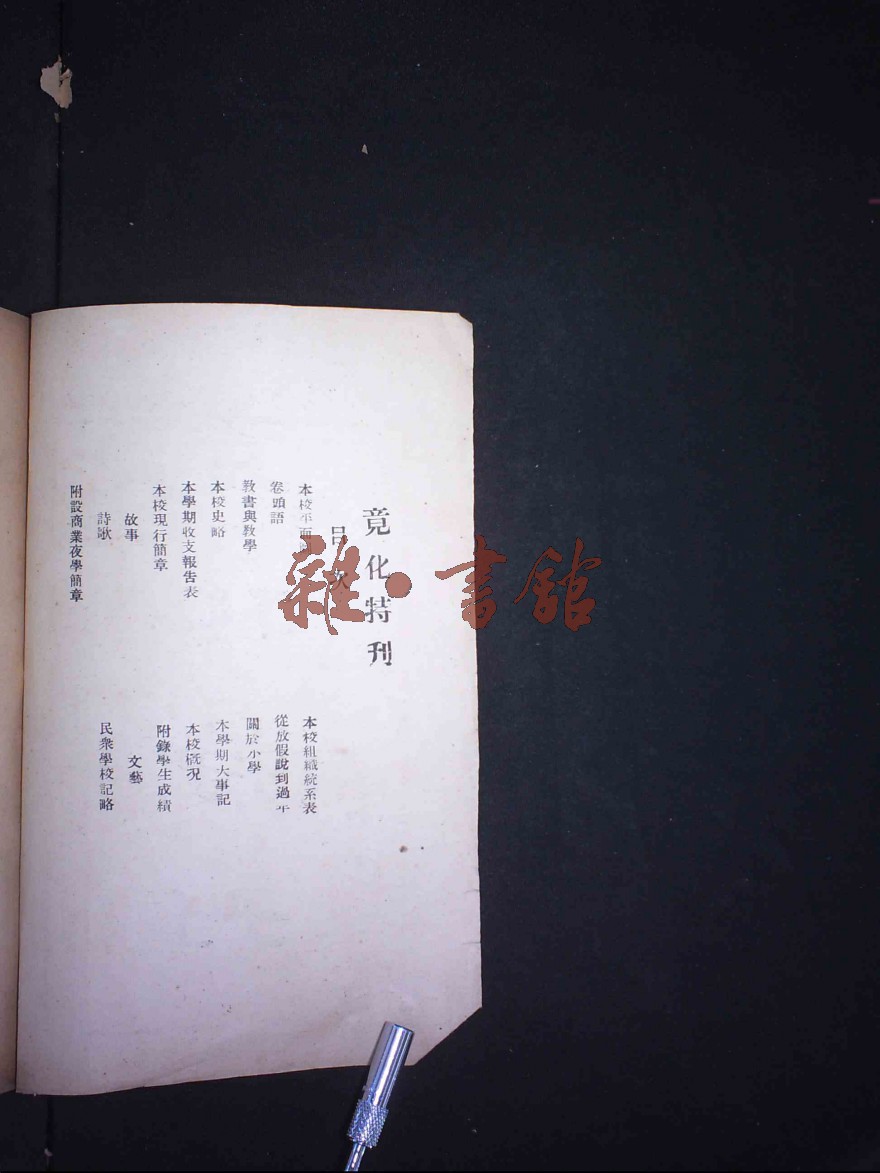 竟化特刊
目次
本校平面圖
本校組織統系表
卷頭語
從放假說到過年
教書與教學
關於小學
本校史略
本學期大事記
本學期收支報告表
本校概況
本校現行簡章
附錄學生成績
故事
文藝
詩歌
民衆學校記略
附設商業夜學簡章
雜·書館